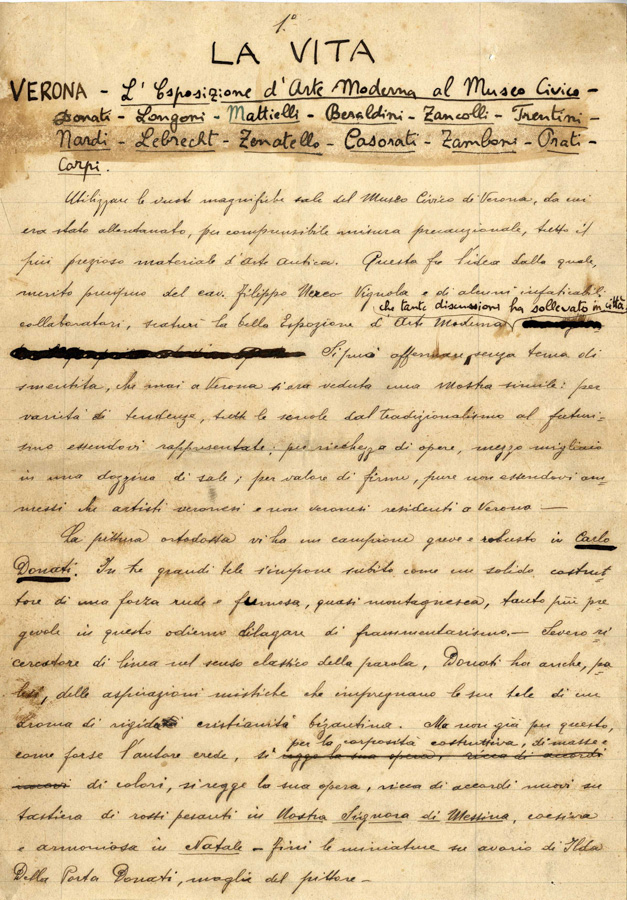 1.º
LA VITA
VERONA - L'Esposizione d'Arte Moderna al Museo Civico -
Donati - Longoni - Mattielli - Beraldini - Zancolli - Trentini -
Nardi - Lebrecht - Zenatello - Casorati - Zamboni - Prati -
Carpi.
Utilizzare le vaste magnifiche sale del Museo Civico di Verona, da cui
era stato allontanato, per comprensibile misura precauzionale, tutto il
più prezioso materiale d'Arte Antica. Questa fu l'idea dalla quale,
merito precipuo del cav. Filippo Nereo Vignola e di alcuni infaticabili
che tante discussioni ha sollevato in città.
collaboratori, scaturì la bella Esposizione d'Arte Moderna
Si può affermare, senza tema di
smentita, che mai a Verona si era veduta una Mostra simile: per
varietà di tendenze, tutte le scuole dal tradizionalismo al futuri-
smo essendovi rappresentate; per ricchezza di opere, mezzo migliaio
in una dozzina di sale; per valore di firme, pure non essendovi am-
messi che artisti veronesi e non veronesi residenti a Verona —
La pittura ortodossa vi ha un campione greve e robusto in Carlo
Donati. In tre grandi tele s'impone subito come un solido costrut-
tore di una forza rude e fumosa, quasi montagnesca, tanto più pre-
gevole in questo odierno dilagare di frammentarismo. — Severo ri-
cercatore di linea nel senso classico della parola, Donati ha anche, pa-
lesi, delle aspirazioni mistiche che impregnano le sue tele di un
aroma di rigidità cristianità bizantina. Ma non già per questo,
per la corposità costruttiva, di masse e
come forse l'autore crede, si regge la sua opera, ricca di accordi
nuovi di colori, si regge la sua opera, ricca di accordi nuovi su
tastiera di rossi pesanti in Nostra Signora di Messina, coesiva
e armoniosa in Natale - fini le miniature su avorio di Ilda
Della Porta Donati, moglie del pittore -